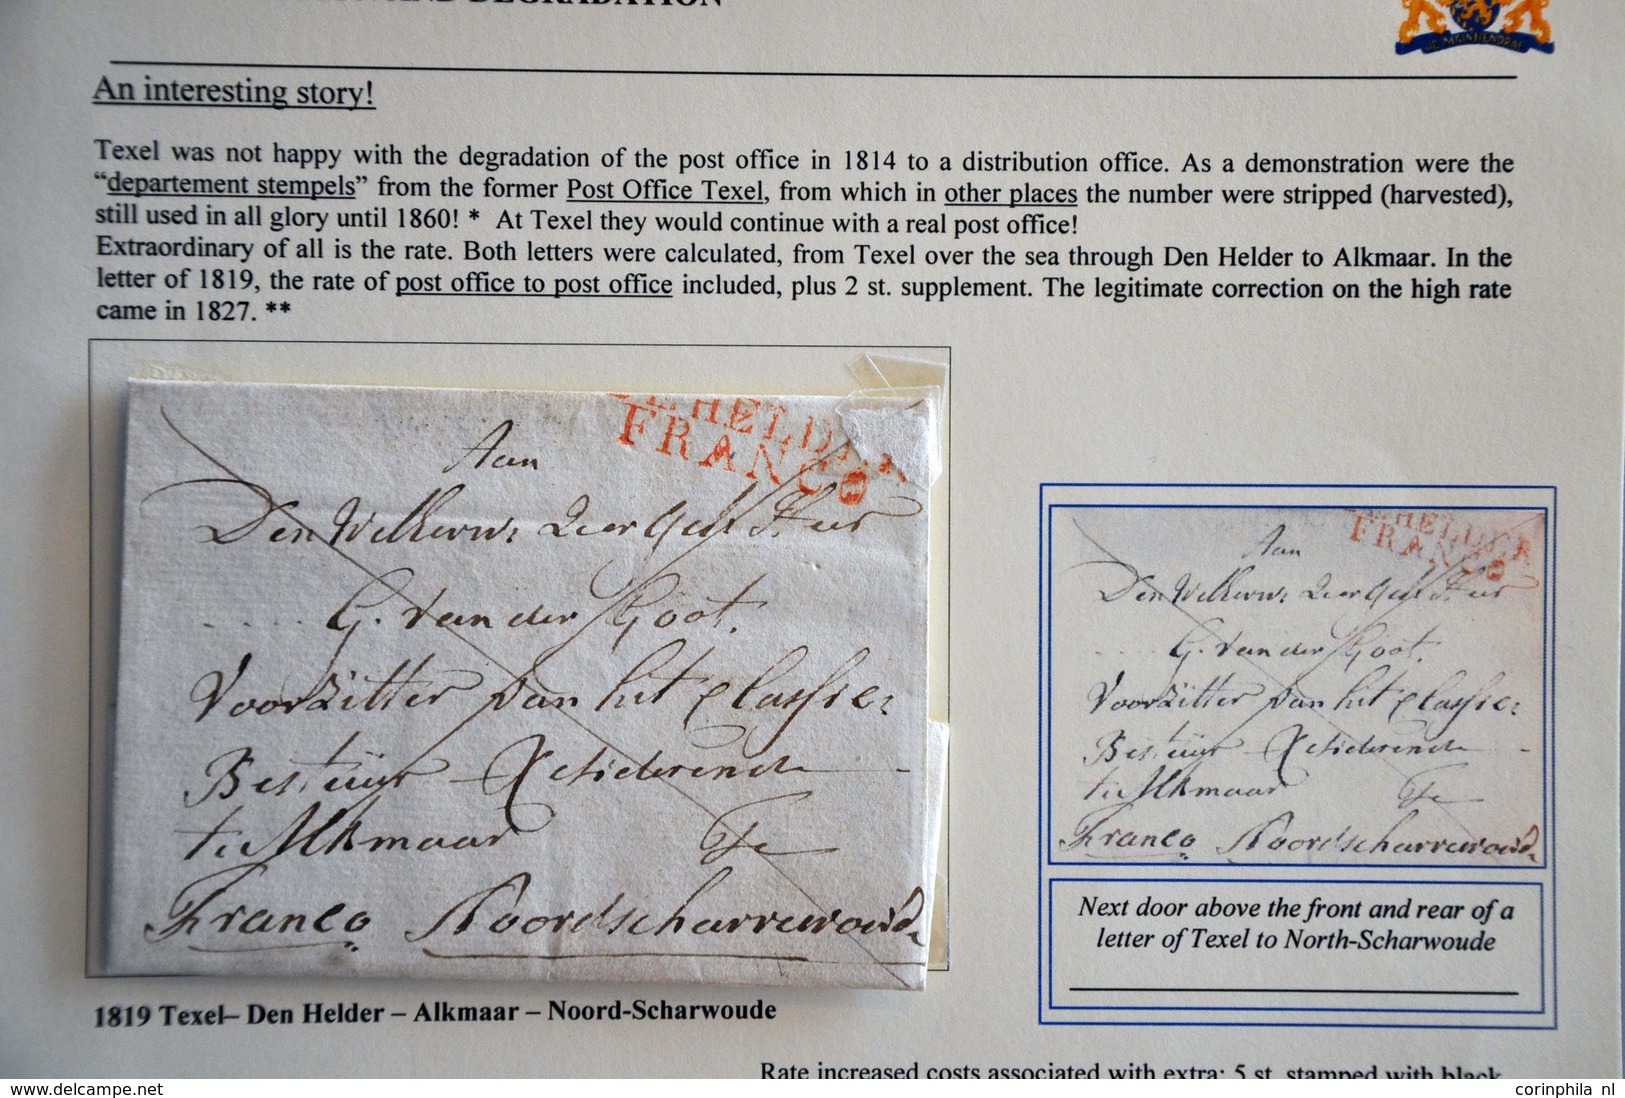 AND DEGRADATION
JE MAINTIENDRAI
An interesting story!
Texel was not happy with the degradation of the post office in 1814 to a distribution office. As a demonstration were the
“departement stempels” from the former Post Office Texel, from which in other places the number were stripped (harvested),
still used in all glory until 1860! * At Texel they would continue with a real post office!
Extraordinary of all is the rate. Both letters were calculated, from Texel over the sea through Den Helder to Alkmaar. In the
letter of 1819, the rate of post office to post office included, plus 2 st. supplement. The legitimate correction on the high rate
came in 1827. **
HELDER
FRANCO
Aan
Den
G. van der Goot.
Voorzitter van hit
Bestuur
te Alkmaar Te
Franco Noordscharrewoude
HELDER
FRANCO
Aan
Den
G. van der Goot.
Voorzitter van hit
Bestuur
te Alkmaar Te
Franco Noordscharrewoude
Next door above the front and rear of a
letter of Texel to North-Scharwoude
1819 Texel– Den Helder – Alkmaar – Noord-Scharwoude
Rate increased costs associated with extra: 5 st. stamped with black
www.delcampe.net
corinphila nl